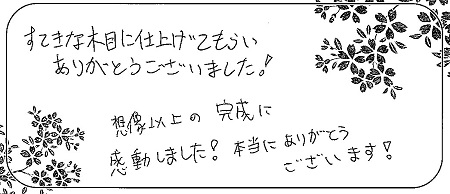 すてきな木目に仕上げてもらい
ありがとうございました!
想像以上の完成に
感動しました!本当にありがとう
ございます!